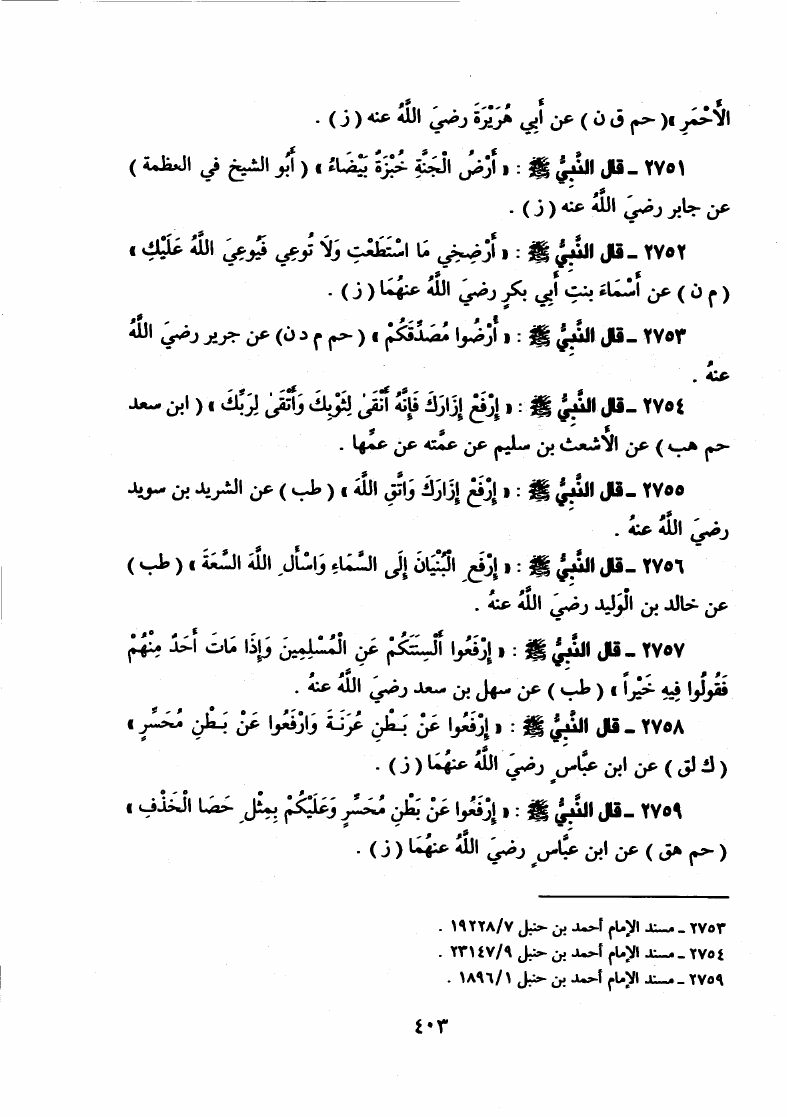 الْأَحْمَرِ »( حم ق ن ) عن أَبِي هُرَيْرَةَ رضيَ اللَّهُ عنه ( ز ) .
٢٧٥١ ـ قال النَّبِيُّ ﷺ : « أَرْضُ الْجَنَّةِ خُبْزَةٌ بَيْضَاءُ » ( أَبو الشيخ في العظمة )
عن جابر رضيَ اللَّهُ عنه ( ز ) .
٢٧٥٢ ـ قال النَّبِيُّ ﷺ : « أَرْضِخِي مَا اسْتَطَعْتِ وَلَا تُوعِي فَيُوعِيَ اللَّهُ عَلَيْكِ »
( م ن ) عن أَسْمَاءَ بنتِ أَبِي بكرٍ رضيَ اللَّهُ عنهُمَا ( ز ) .
٢٧٥٣ ـ قال النَّبِيُّ ﷺ : « أَرْضُوا مُصَدِّقَكُمْ » ( حم م د ن) عن جرير رضيَ اللَّهُ
عنهُ .
٢٧٥٤ ـ قال النَّبِيُّ ﷺ : « إِرْفَعْ إِزَارَكَ فَإِنَّهُ أَنْقَىٰ لِثَوْبِكَ وَأَتْقَىٰ لِرَبِّكَ » ( ابن سعد
حم هب ) عن الأَشعث بن سليم عن عمَّته عن عمِّها .
٢٧٥٥ ـ قال النَّبِيُّ ﷺ : « إِرْفَعْ إِزَارَكَ وَاتَّقِ اللَّهَ » ( طب ) عن الشريد بن سويد
رضيَ اللَّهُ عنهُ .
٢٧٥٦ ـ قال النَّبِيُّ ﷺ : « إِرْفَعِ الْبُنْيَانَ إِلَى السَّمَاءِ وَاسْأَلِ اللَّهَ السَّعَةَ » ( طب )
عن خالد بن الْوَليد رضيَ اللَّهُ عنهُ .
٢٧٥٧ ـ قال النَّبِيُّ ﷺ : « إِرْفَعُوا أَلْسِنَتَكُمْ عَنِ الْمُسْلِمِينَ وَإِذَا مَاتَ أَحَدٌ مِنْهُمْ
فَقُولُوا فِيهِ خَيْراً » ( طب ) عن سهل بن سعد رضيَ اللَّهُ عنهُ .
٢٧٥٨ ـ قال النَّبِيُّ ﷺ : « إِرْفَعُوا عَنْ بَطْنِ عُرَنَةَ وَارْفَعُوا عَنْ بَطْنِ مُحَسِّرٍ »
( ك لق ) عن ابن عبَّاسٍ رضيَ اللَّهُ عنهُمَا ( ز ) .
٢٧٥٩ ـ قال النَّبِيُّ ﷺ : « إِرْفَعُوا عَنْ بَطْنِ مُحَسِّرٍ وَعَلَيْكُمْ بِمِثْلِ حَصَا الْخَذْفِ »
( حم هق ) عن ابن عبَّاسٍ رضيَ اللَّهُ عنهُمَا ( ز ) .
٢٧٥٣ ـ مسند الإمام أحمد بن حنبل ١٩٢٢٨/٧ .
٢٧٥٤ ـ مسند الإمام أحمد بن حنبل ٢٣١٤٧/٩ .
٢٧٥٩ ـ مسند الإمام أحمد بن حنبل ١٨٩٦/١ .
٤٠٣